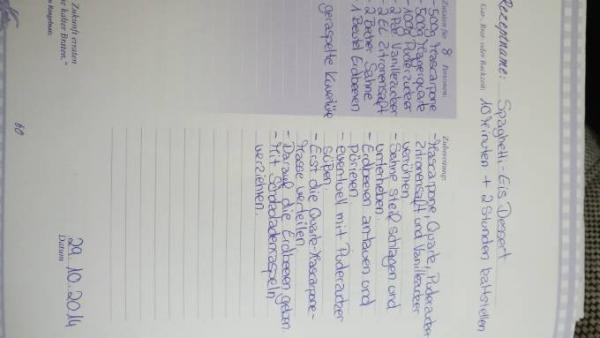 Rezeptname: Spaghetti-Eis Dessert
Gar-, Brat- oder Backzeit: 10 Minuten + 2 Stunden kaltstellen
Zutaten für 8 Personen:
- 500g Mascarpone
- 500g Magerquark
- 100g Puderzucker
- 2 Pck Vanillezucker
- 2 EL Zitronensaft
- 2 Becher Sahne
- 1 Beutel Erdbeeren
geraspelte Kuvertüre
Zubereitung:
- Mascarpone, Quark, Puderzucker
Zitronensaft und Vanillezucker
verrühren
- Sahne steif schlagen und
unterheben.
- Erdbeeren antauen und
pürieren.
- eventuell mit Puderzucker
süßen.
- Erst die Quark-Mascarpone-
Masse verteilen
- Darauf die Erdbeeren geben.
- Mit Schokoladenraspeln
verziehren.
Zukunft erraten
kalter Braten."
60
29.10.2014
Datum